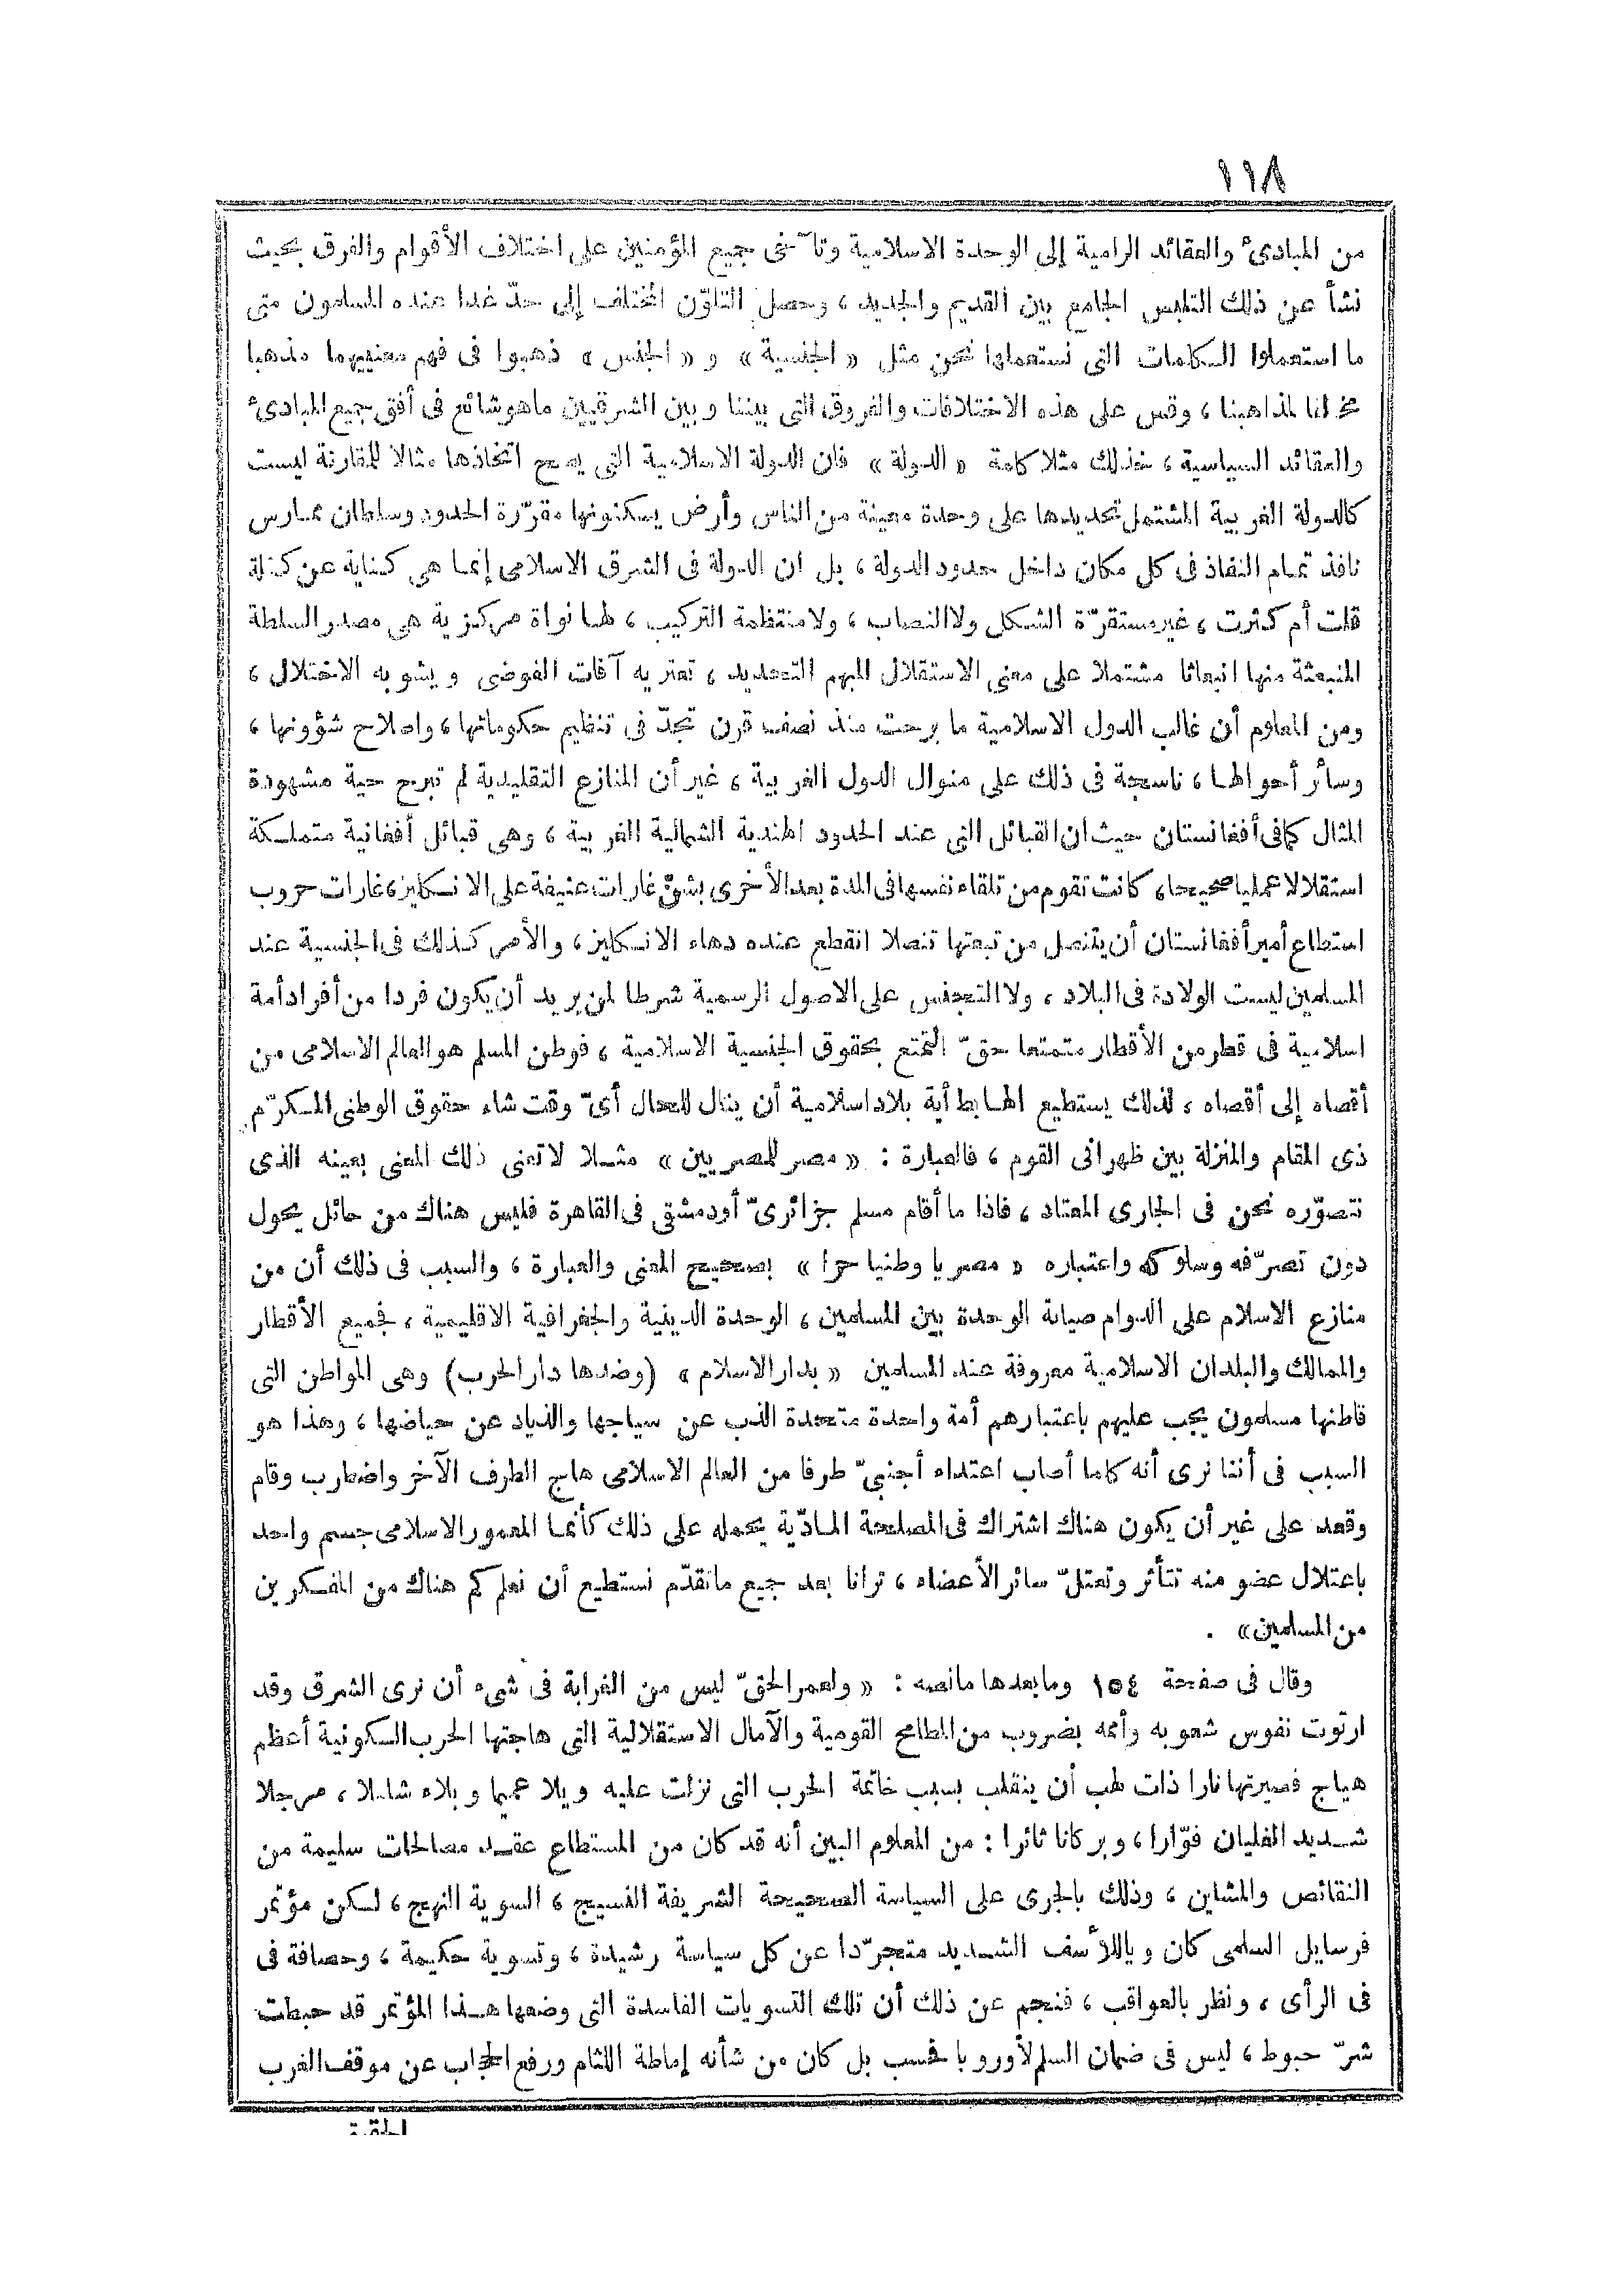 ١١٨
من المبادئ والعقائد الرامية إلى الوحدة الاسلامية وتآخى جميع المؤمنين على اختلاف الأقوام والفرق بحيث
نشأ عن ذلك التلبس الجامع بين القديم والجديد ، وحصل التلوّن المختلف إلى حدّ غدا عنده المسلمون متى
ما استعملوا الكلمات التى نستعملها نحن مثل « الجنسية » و « الجنس » ذهبوا فى فهم معنييهما مذهبا
مخالفا لمذاهبنا ، وقس على هذه الاختلافات والفروق التى بيننا وبين الشرقيين ماهو شائع فى أفق جميع المبادئ
والعقائد السياسية ، فذلك مثلا كلمة « الدولة » فان الدولة الاسلامية التى يصح اتخاذها مثالا للمقارنة ليست
كالدولة الغربية المشتمل تحديدها على وحدة معينة من الناس وأرض يسكنونها مقرّرة الحدود وسلطان ممارس
نافذ تمام النفاذ فى كل مكان داخل حدود الدولة ، بل ان الدولة فى الشرق الاسلامى إنما هى كناية عن كتلة
قلت أم كثرت ، غير مستقرّة الشكل ولا النصاب ، ولا منتظمة التركيب ، لها نواة مركزية هى مصدر السلطة
المنبعثة منها انبعاثا مشتملا على معنى الاستقلال المبهم التحديد ، تعتريه آفات الفوضى ويشوبه الاختلال ،
ومن المعلوم أن غالب الدول الاسلامية ما برحت منذ نصف قرن تجدّ فى تنظيم حكوماتها ، واصلاح شؤونها ،
وسائر أحوالها ، ناسجة فى ذلك على منوال الدول الغربية ، غير أن المنازع التقليدية لم تبرح حية مشهودة
المثال كما فى أفغانستان حيث ان القبائل التى عند الحدود الهندية الشمالية الغربية ، وهى قبائل أفغانية متملكة
استقلالا عمليا صحيحا ، كانت تقوم من تلقاء نفسها فى المدة بعد الأخرى بشنّ غارات عنيفة على الانكليز ، غارات حروب
استطاع أمير أفغانستان أن يتنصل من تبعتها تنصلا انقطع عنده دهاء الانكليز ، والأمر كذلك فى الجنسية عند
المسلمين ليست الولادة فى البلاد ، ولا التجنس على الاصول الرسمية شرطا لمن يريد أن يكون فردا من أفراد أمة
اسلامية فى قطر من الأقطار متمتعا حقّ التمتع بحقوق الجنسية الاسلامية ، فوطن المسلم هو العالم الاسلامى من
أقصاه إلى أقصاه ، لذلك يستطيع الهابط أية بلاد اسلامية أن ينال للحال أىّ وقت شاء حقوق الوطنى المكرّم
ذى المقام والمنزلة بين ظهرانى القوم ، فالعبارة : « مصر للمصريين » مثلا لا تعنى ذلك المعنى بعينه الذى
نتصوّره نحن فى الجارى المعتاد ، فاذا ما أقام مسلم جزائرىّ أو دمشقى فى القاهرة فليس هناك من حائل يحول
دون تصرّفه وسلوكه واعتباره « مصريا وطنيا حرا » بصحيح المعنى والعبارة ، والسبب فى ذلك أن من
منازع الاسلام على الدوام صيانة الوحدة بين المسلمين ، الوحدة الدينية والجغرافية الاقليمية ، فجميع الأقطار
والممالك والبلدان الاسلامية معروفة عند المسلمين « بدار الاسلام » (وضدها دار الحرب) وهى المواطن التى
قاطنها مسلمون يجب عليهم باعتبارهم أمة واحدة متحدة الذب عن سياجها والذياد عن حياضها ، وهذا هو
السبب فى أننا نرى أنه كلما أصاب اعتداء أجنبىّ طرفا من العالم الاسلامى هاج الطرف الآخر واضطرب وقام
وقعد على غير أن يكون هناك اشتراك فى المصلحة المادّية يحمله على ذلك كأنما المعمور الاسلامى جسم واحد
باعتلال عضو منه تتأثر وتعتلّ سائر الأعضاء ، ترانا بعد جميع ماتقدّم نستطيع أن نعلم كم هناك من المفكرين
من المسلمين» .
وقال فى صفحة ١٥٤ وما بعدها مانصه : « ولعمر الحقّ ليس من الغرابة فى شىء أن نرى الشرق وقد
ارتوت نفوس شعوبه وأممه بضروب من المطامح القومية والآمال الاستقلالية التى هاجتها الحرب السكونية أعظم
هياج فصيرتها نارا ذات لهب أن ينقلب بسبب خاتمة الحرب التى نزلت عليه ويلا عميما وبلاء شاملا ، مرجلا
شديد الغليان فوّارا ، وبركانا ثائرا : من المعلوم البين أنه قد كان من المستطاع عقد مصالحات سليمة من
النقائص والمشاين ، وذلك بالجرى على السياسة الصحيحة الشريفة الفسيح ، السوية النهج ، لكن مؤتمر
فرسايل السلمى كان وياللأسف الشديد متجرّدا عن كل سياسة رشيدة ، وتسوية حكيمة ، وحصافة فى
فى الرأى ، ونظر بالعواقب ، فنجم عن ذلك أن تلك التسويات الفاسدة التى وضعها هذا المؤتمر قد حبطت
شرّ حبوط ، ليس فى ضمان السلم لأوروبا فحسب بل كان من شأنه إماطة اللثام ورفع الحجاب عن موقف الغرب